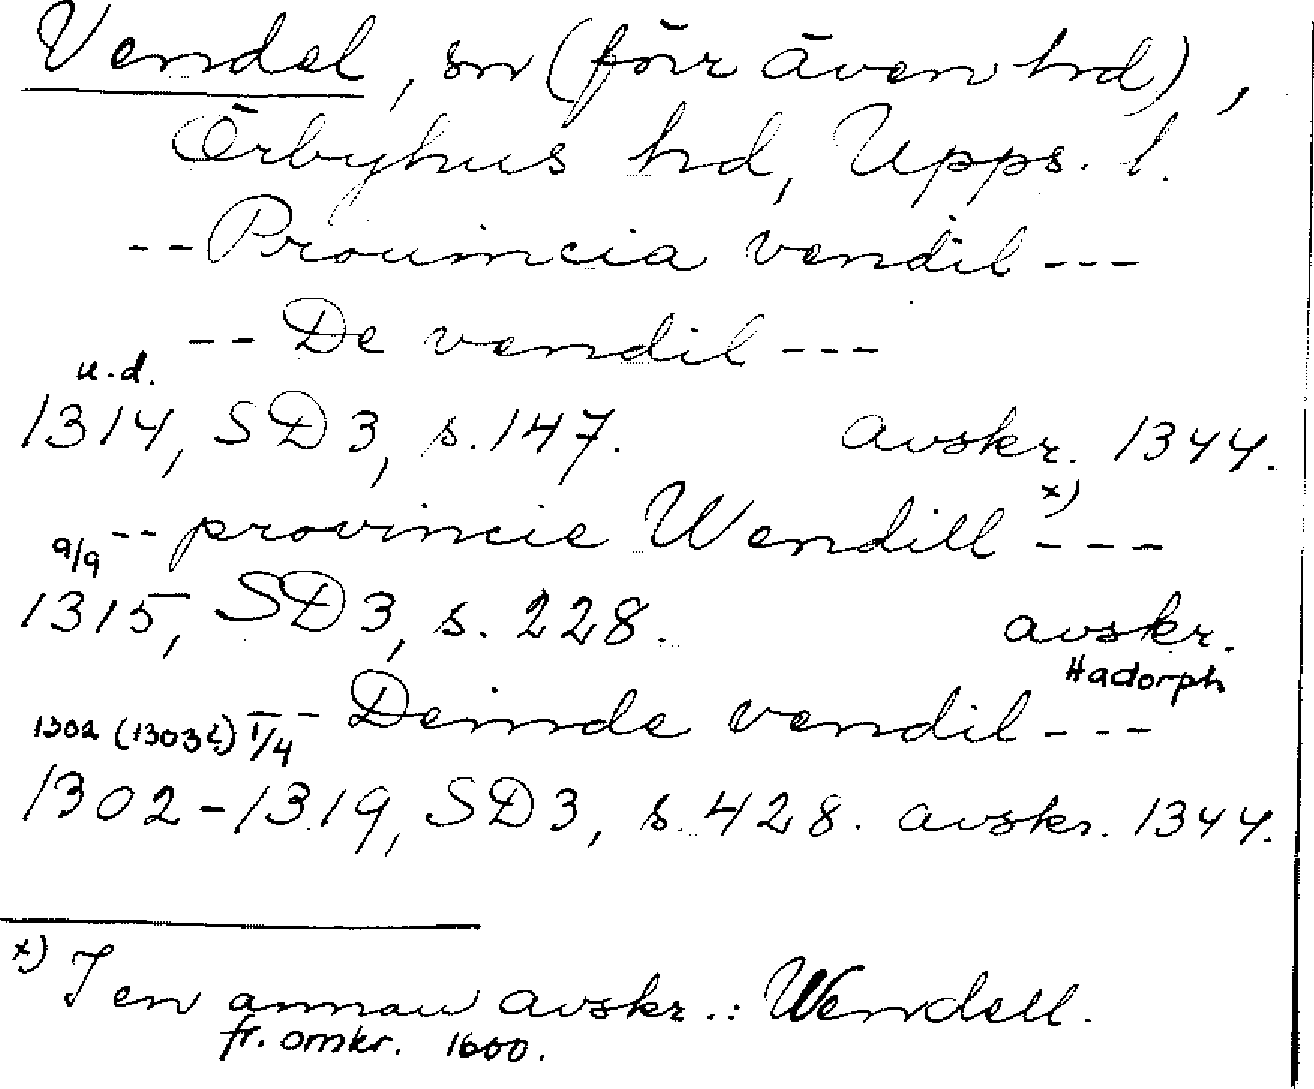 Vendel, sn (förr även hd),
Örbyhus hd, Upps. l.
-- Prouincia vendil ---
-- De vendil ---
u.d.
1314, SD 3, s. 147. avskr. 1344.
-- provincie Wendill x) ---
9/9
1315, SD 3, s. 228. avskr.
Hadorph
-- Deinde vendil ---
1302 (1303?) 1/4
1302-1319, SD 3, s. 428. avskr. 1344.
x) I en annan avskr.: Wendell.
fr. omkr. 1600.